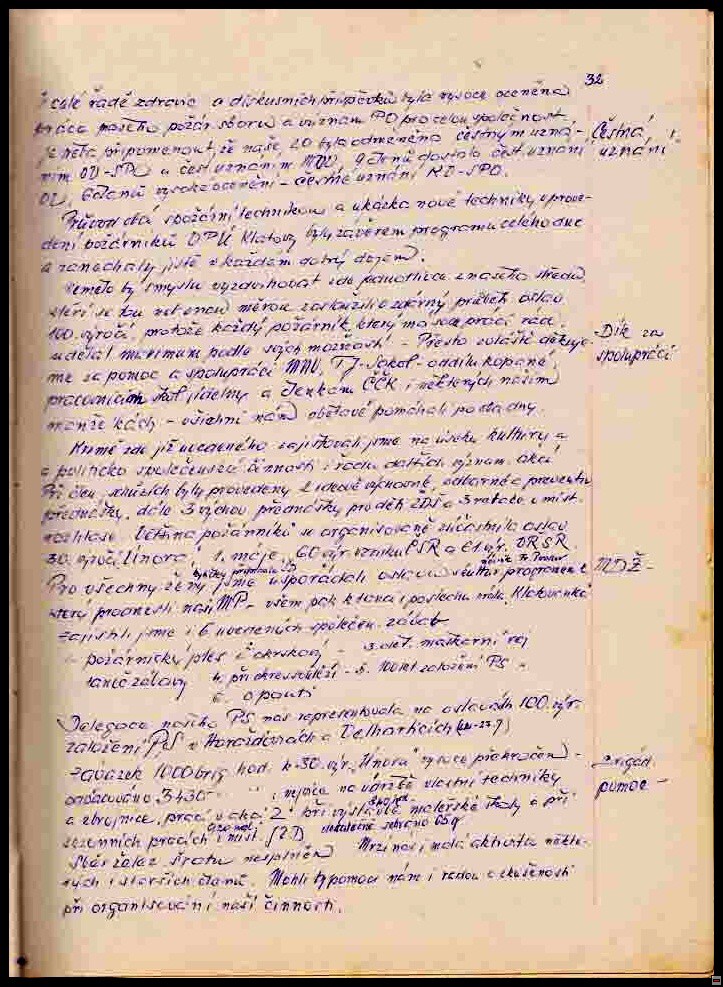 32
V celé řadě zdravic a diskusních příspěvků byla vysoce oceněna
práce našeho požár. sboru a význam PO pro celou společnost.
Je třeba připomenout, že naše ZO byla odměněna čestným uzná-
Čestná uznání!
ním OV-SPO a čest. uznáním MNV, 9 členů dostalo čest. uznání
OV, 6 členů vysoké ocenění - čestné uznání KV-SPO.
Průvod obcí s požární technikou a ukázka nové techniky v prove-
dení požárníků OPÚ Klatovy byly závěrem programu celého dne
a zanechaly jistě v každém dobrý dojem.
Nemělo by smyslu vyzdvihovat zde jednotlivce z našeho středu
kteří se tou neb onou měrou zasloužili o zdárný průběh oslav
100. výročí, protože každý požárník, který má svou práci rád
udělal maximum podle svých možností - Přesto zvláště děkuje-
Dík za spolupráci
me za pomoc a spolupráci MNV, TJ-Sokol - oddílu kopané,
pracovnicím škol. jídelny a členkám ČČK i některých našim
manželkách - všichni nám obětavě pomáhali po oba dny.
Kromě zde již uvedeného zajišťovali jsme na úseku kultury a
a politicko společenské činnosti i řadu dalších význam. akcí
Při člen. schůzích byly provedeny 2 ideově výchovné, odborné a preventiv.
přednášky, dále 3 vých. přednášky pro děti ZDŠ a 3 relace v míst.
rozhlase. Většina požárníků se organisovaně zúčastnila oslav
30. výročí Února, 1. máje, 60. výr. vzniku ČSR a 61. výr. VŘSR.
Pro všechny ženy jsme uspořádali oslavu s kultur. programem
MDŽ -
který přednesli naši MP - všem pak k tanci i poslechu hrála Klatovanka
Zajistili jsme i 6 uvedených společen. zábav
požárnický ples 3. dět. maškarní rej
taneč. zábavy 4. při okres. soutěži - 5. 100 let založení PS
6. o pouti
Delegace našeho PS nás representovala na oslavách 100. výr.
založení PS v Horažďovicích a Velharticích
Závazek 1000 brig. hod. k 30. výr. "Února" vysoce překročen -
odpracováno 3430 - nejvíce na údržbě vlastní techniky
brigád. pomoc -
a zbrojnice, prací v akci "Z" při výstavbě mateřské školy a při
sezonních pracích i míst. JZD
Sběr želez. šrotu nesplněn Mrzí nás i malá aktivita někte-
rých i starších členů. Mohli by pomoci nám i radou a zkušeností
při organisování naší činnosti.